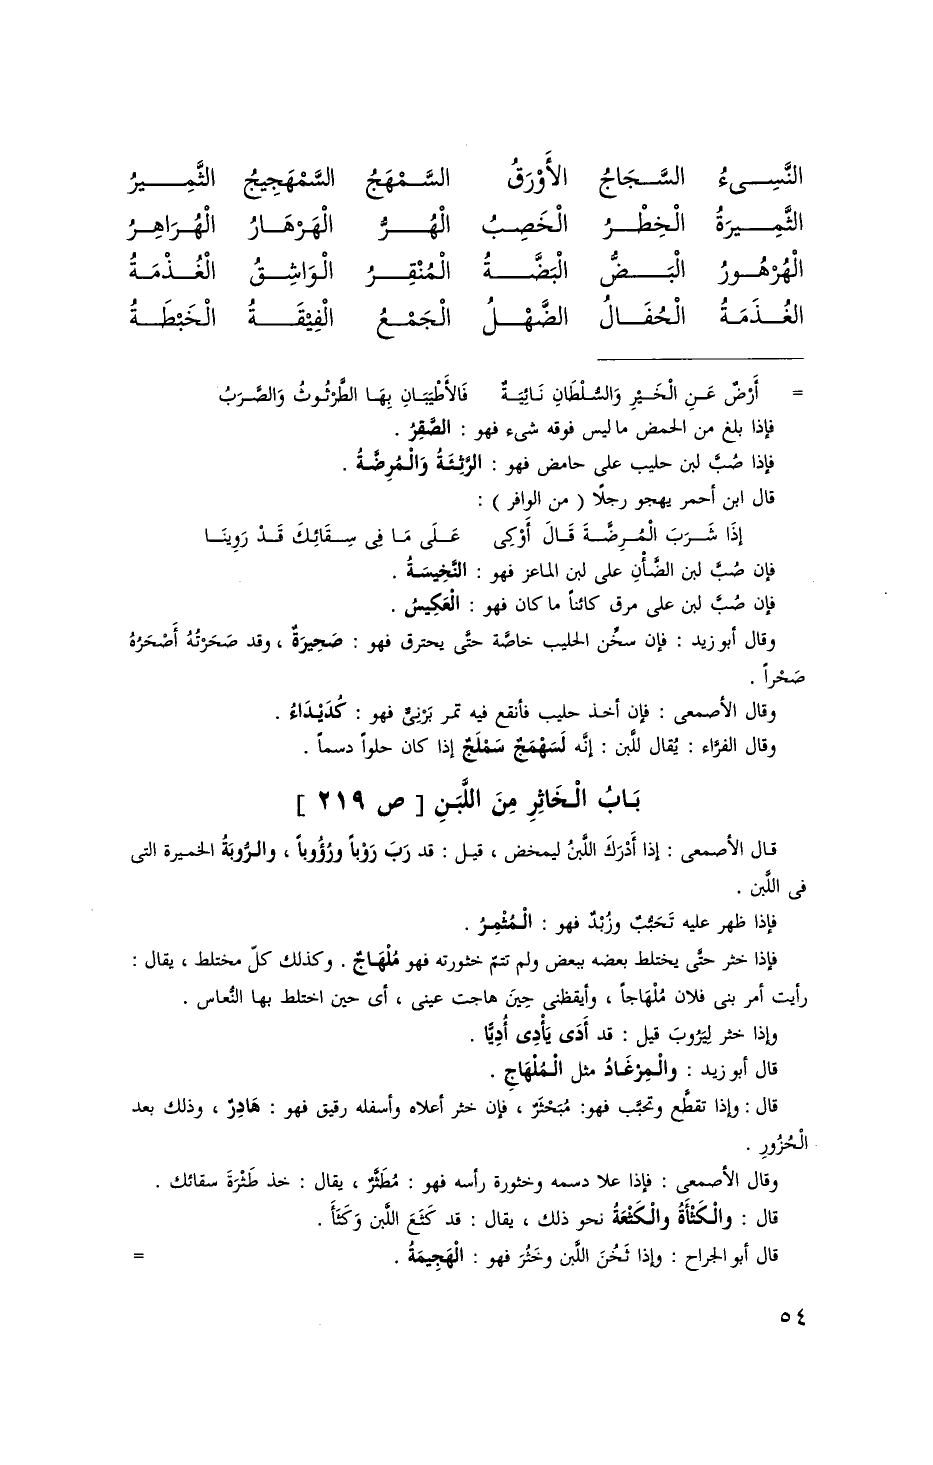 النَّسِىءُ السَّجَاجُ الأَوْرَقُ السَّمْهَجُ السَّمْهَجِيجُ الثَّمِيرُ
الثَّمِيرَةُ الْخِطْرُ الْخَصِبُ الْهُرُّ الْهَرْهَارُ الْهُرَاهِرُ
الْهُرْهُورُ الْبَضُّ الْبَضَّةُ الْمُنْقِرُ الْوَاشِقُ الْغُذْمَةُ
الْغُذَمَةُ الْحُفَالُ الضَّهْلُ الْجَمْعُ الْفِيْقَةُ الْخَبْطَةُ
= أَرْضٌ عَنِ الْخَيْرِ وَالسُّلْطَانِ نَائِيَةٌ فَالأَطْيَبَانِ بِهَا الطُّرْثُوثُ وَالصَّرَبُ
فإذا بلغ من الحمض ما ليس فوقه شىء فهو : الصَّقِرُ .
فإذا صُبَّ لبن حليب على حامض فهو : الرَّثِيئَةُ وَالْمُرِضَّةُ .
قال ابن أحمر يهجو رجلًا ( من الوافر ) :
إِذَا شَرَبَ الْمُرِضَّةَ قَالَ أَوْكِى عَلَى مَا فِى سِقَائِكَ قَدْ رَوِينَا
فإن صُبَّ لبن الضَّأْنِ على لبن الماعز فهو : النَّخِيسَةُ .
فإن صُبَّ لبن على مرق كائناً ما كان فهو : الْعَكِيسُ .
وقال أبو زيد : فإن سخِّن الحليب خاصَّة حتَّى يحترق فهو : صَحِيرَةٌ ، وقد صَحَرْتُهُ أَصْحَرُهُ
صَحْراً .
وقال الأصمعى : فإن أخذ حليب فأنقع فيه تمر بَرْنِىٌّ فهو : كُدَيْدَاءُ .
وقال الفرَّاء : يُقال للَّبن : إنَّه لَسَهْمَجٌ سَمْلَجٌ إذا كان حلواً دسماً .
بَابُ الْخَاثِرِ مِنَ اللَّبَنِ [ ص ٢١٩ ]
قال الأصمعى : إذا أَدْرَكَ اللَّبنُ ليمخض ، قيل : قد رَبَ رَوْباً ورُؤُوباً ، والرُّوبَةُ الخميرة التى
فى اللَّبن .
فإذا ظهر عليه تَحَبُّبٌ وزُبْدٌ فهو : الْمُثْمِرُ .
فإذا خثر حتَّى يختلط بعضه ببعض ولم تتمّ خثورته فهو مُلْهَاجٌ . وكذلك كلّ مختلط ، يقال :
رأيت أمر بنى فلان مُلْهَاجاً ، وأيقظنى حِينَ هاجت عينى ، أى حين اختلط بها النُّعاس .
وإذا خثر لِيَرُوبَ قيل : قد أَدَى يَأْدِى أُدِيًّا .
قال أبو زيد : والْمِرْغَادُ مثل الْمُلْهَاجِ .
قال : وإذا تقطَّع وتحبَّب فهو: مُبَحْثَرٌ ، فإن خثر أعلاه وأسفله رقيق فهو : هَادِرٌ ، وذلك بعد
الْحُزُورِ .
وقال الأصمعى : فإذا علا دسمه وخثورة رأسه فهو : مُطَثَّرٌ ، يقال : خذ طَثْرَةَ سقائك .
قال : والْكَثْأَةُ والْكَثْعَةُ نحو ذلك ، يقال : قد كَثَعَ اللَّبن وَكَثَأَ .
قال أبو الجراح : وإذا ثَخُنَ اللَّبن وخَثُرَ فهو : الْهَجِيمَةُ . =
٥٤